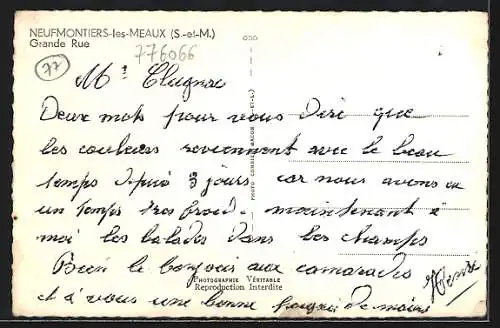 NEUFMONTIERS-les-MEAUX (S.-et-M.)
Grande Rue
776066
77
Mr Clugnac
Deux mots pour vous dire que
les couleurs reviennent avec le beau
temps depuis 3 jours car nous avons eu
un temps très froid. maintenant à
moi les balades dans les champs
Bien le bonjour aux camarades
et à vous une bonne poignée de mains
PHOTOGRAPHIE VÉRITABLE
Reproduction Interdite